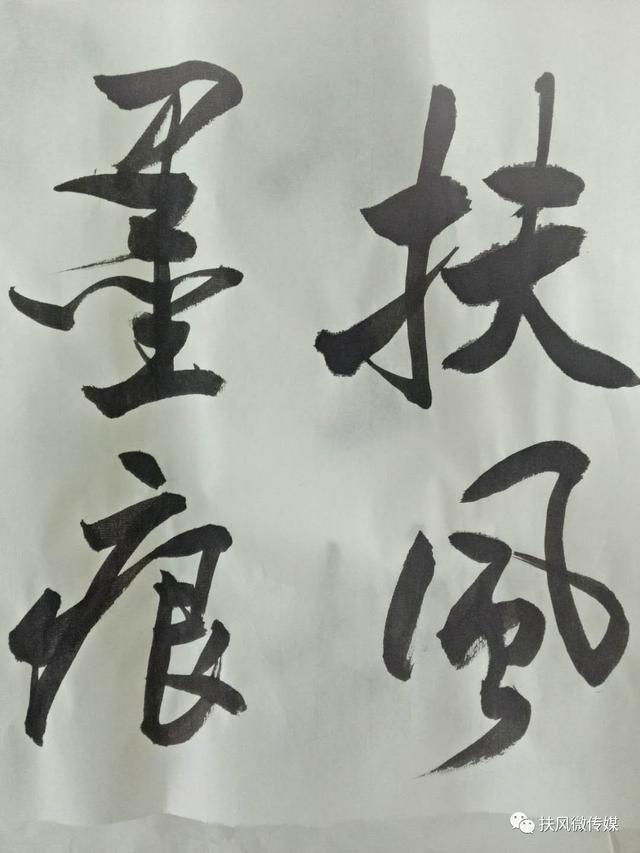 扶風
墨痕
扶风微传媒